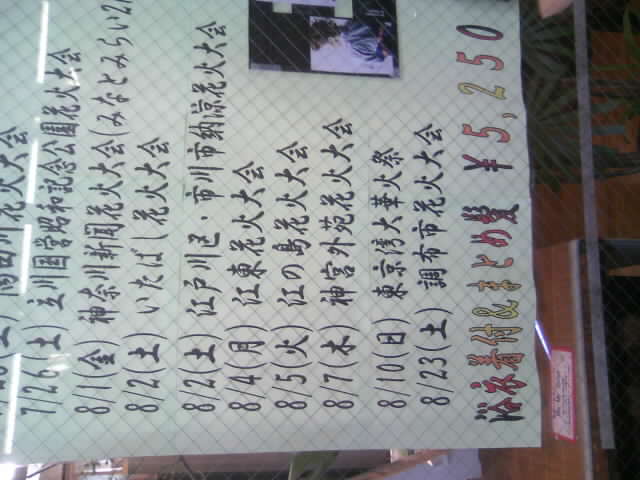 (土) 隅田川花火大会
7/26(土) 立川国営昭和記念公園花火大会
8/1(金) 神奈川新聞花火大会(みなとみらい21
8/2(土) いたばし花火大会
8/2(土) 江戸川区・市川市納涼花火大会
8/4(月) 江東花火大会
8/5(火) 江の島花火大会
8/7(木) 神宮外苑花火大会
8/10(日) 東京湾大華火祭
8/23(土) 調布市花火大会
浴衣着付&まとめ髪 ¥5,250